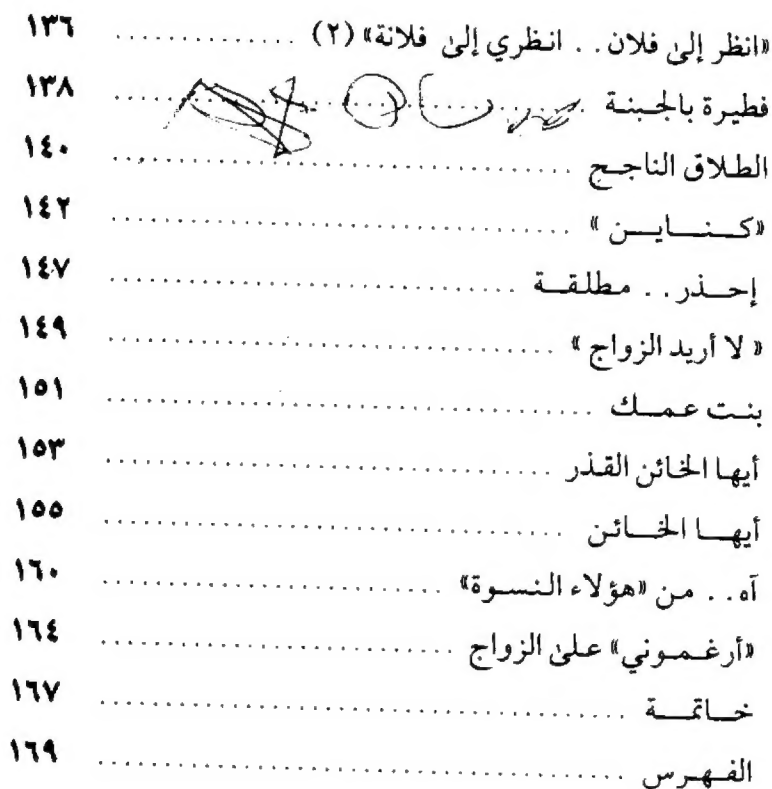 «انظر إلىٰ فلان . . انظري إلىٰ فلانة» (٢) ............. ١٣٦
فطيرة بالجبنة ............. ١٣٨
الطلاق الناجح ............. ١٤٠
«كنايـن» ............. ١٤٢
إحذر . . مطلقة ............. ١٤٧
«لا أريد الزواج» ............. ١٤٩
بنت عمك ............. ١٥١
أيها الخائن القذر ............. ١٥٣
أيها الخائن ............. ١٥٥
آه . . من «هؤلاء النسوة» ............. ١٦٠
«أرغموني» علىٰ الزواج ............. ١٦٤
خاتمة ............. ١٦٧
الفهرس ............. ١٦٩